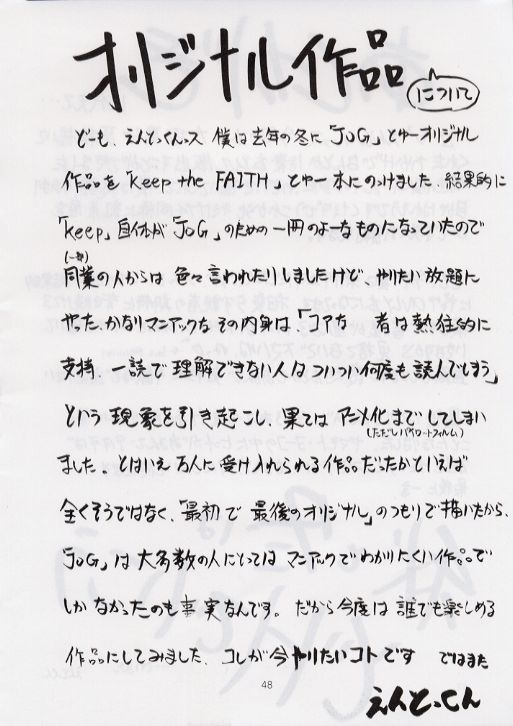 オリジナル作品
について
どーも、えんどっくんっス 僕は去年の冬に「JoG」とゆーオリジナル
作品を「Keep the FAITH」とゆー本にのっけました、結果的に
「Keep」自体が「JoG」のための一冊のよーなものになっていたので
(一部)
同業の人からは 色々言われたりしましたけど、やりたい放題に
やった、かなりマニアックな その内身は「コアな 者は熱狂的に
支持、一読で理解できない人はついつい何度も読んでしまう」
という 現象を引き起こし、果ては アニメ化まで してしまい
(ただしパイロットフィルム)
ました。とはいえ万人に受け入れられる作品だったかといえば
全くそうではなく、「最初で最後のオリジナル」のつもりで描いたから、
「JoG」は大多数の人にとっては マニアックでわかりにくい作品で
しかなかったのも事実なんです。だから今度は 誰でも楽しめる
作品にしてみました、コレが今やりたいコトです ではまた
48